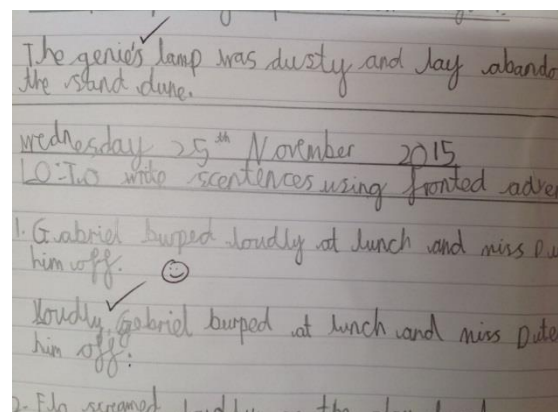 The genie's lamp was dusty and lay abando
the sand dune.
Wednesday 25th November 2015
LO: To write scentences using fronted adve
1. Gabriel burped loudly at lunch and miss Du
him off.
Loudly, Gabriel burped at lunch and miss Dute
him off.
2. screamed loudly